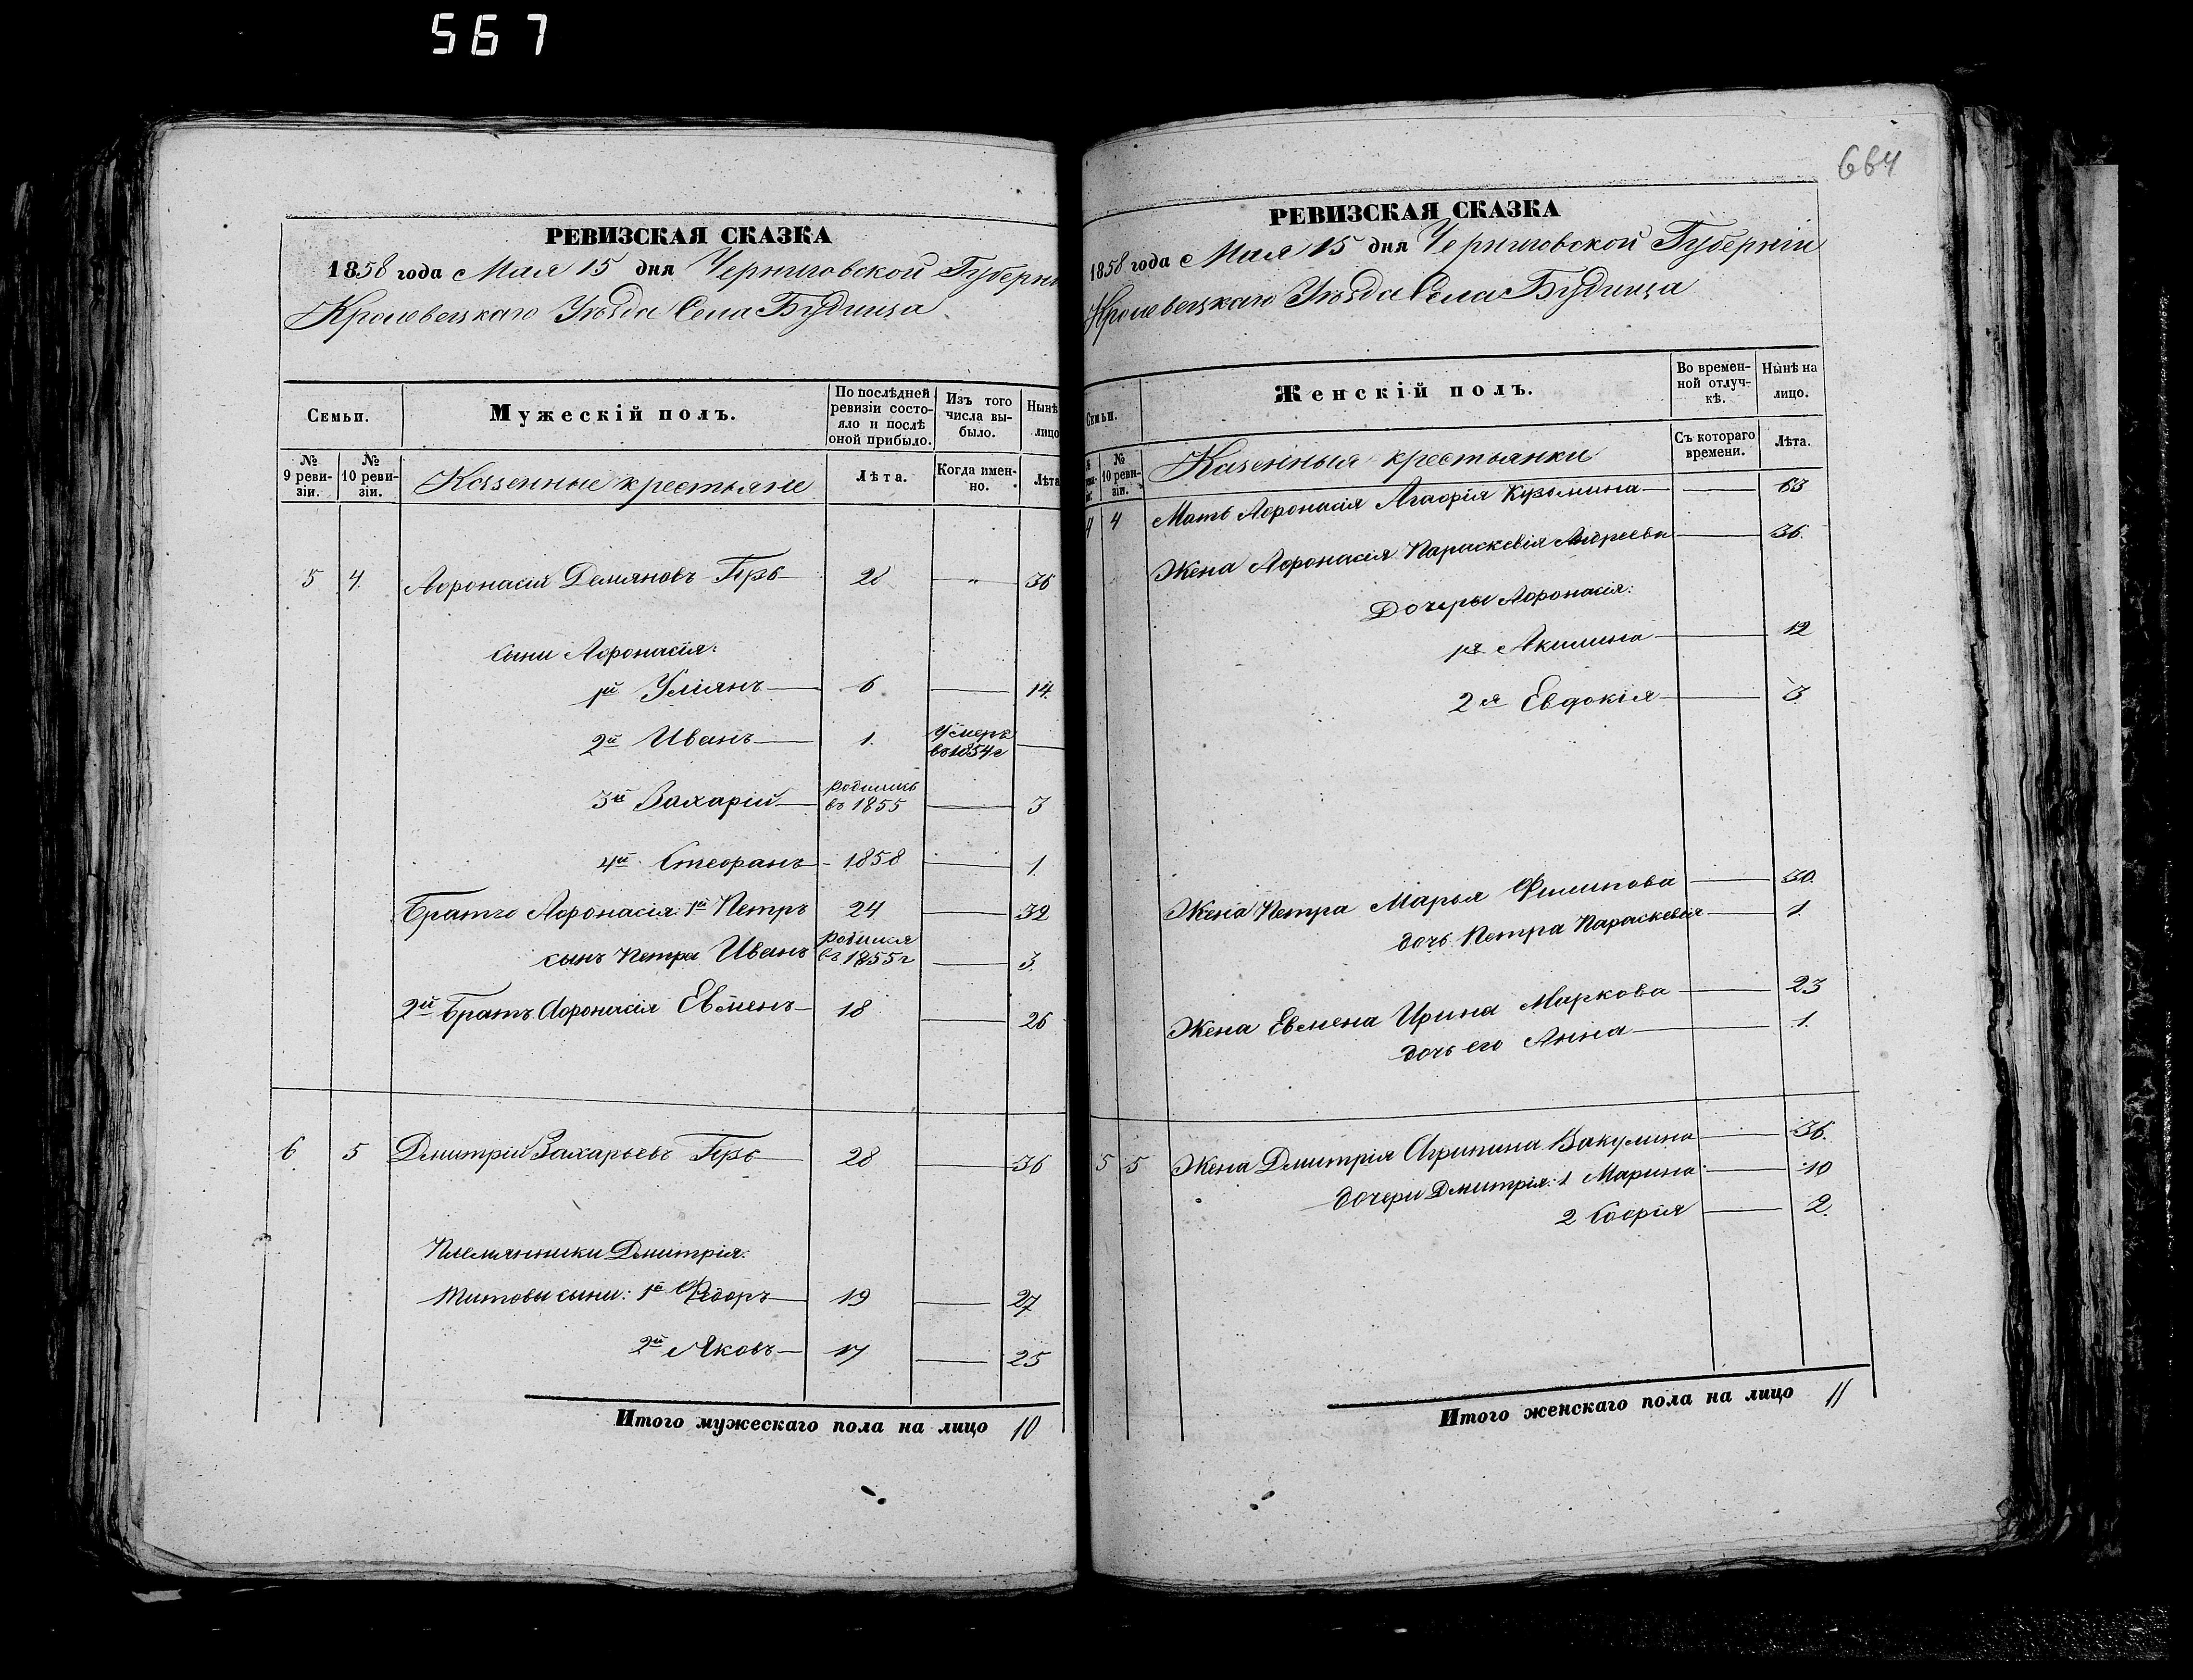 567
664
РЕВИЗСКАЯ СКАЗКА
1858 года Мая 15 дня Черниговской Губерни
Кролевецкаго Уѣзда Села Будища
Семьи.
Мужескій полъ.
По послѣдней ревизіи состояло и послѣ оной прибыло.
Изъ того числа выбыло.
Нынѣ лицо
№ 9 ревизіи.
№ 10 ревизіи.
Казенные крестьяне
Лѣта.
Когда именно.
Лѣта
5 4. Афронасій Демяновъ 28 — " 36
сыни Афронасія:
1й Уліянъ — 6 — 14.
2й Иванъ — 1. Умеръ въ 1854 г —
3й Захарій — родился въ 1855 — 3
4й Стефранъ — - 1858 — 1.
Братъ Афронасія: 1й Петръ 24 — 32
сынъ Петра Иванъ родился въ 1855 г — 3.
2й Братъ Афронасія Евменъ — 18 — 26
6 5 Дмитрій Захарьевъ 28 — 36
Племянники Дмитрія:
Титовы сыни: 1й Федоръ — 19 — 27
2й Яковъ — 17 — 25
Итого мужескаго пола на лицо 10
РЕВИЗСКАЯ СКАЗКА
1858 года Мая 15 дня Черниговской Губерніи
Кролевецкаго Уѣзда Села Будища
Семьи.
Женскій полъ.
Во временной отлучкѣ.
Нынѣ на лицо.
№ 10 ревизіи.
Казенныя крестьянки
Съ котораго времени.
Лѣта.
4 4 Мать Афронасія Агафрія Кузьмина — — 63
Жена Афронасія Параскевія Андреева — 36.
Дочеры Афронасія:
1я Акилина — — 12
2я Евдокія — — 3
Жена Петра Марья Филипова — 30.
дочь Петра Параскевія — 1.
Жена Евмена Ирина Маркова — 23
дочь его Анна — — 1.
5 5 Жена Дмитрія Агрипина Вакулина — 36.
дочери Дмитрія: 1 Марина — 10
2 Софрія — 2.
Итого женскаго пола на лицо 11